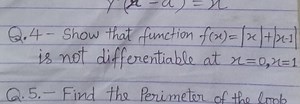 y(x-a)=x
Q.4- Show that function f(x)=|x|+|x-1|
is not differentiable at x=0,x=1
Q.5.- Find the Perimeter of the loop